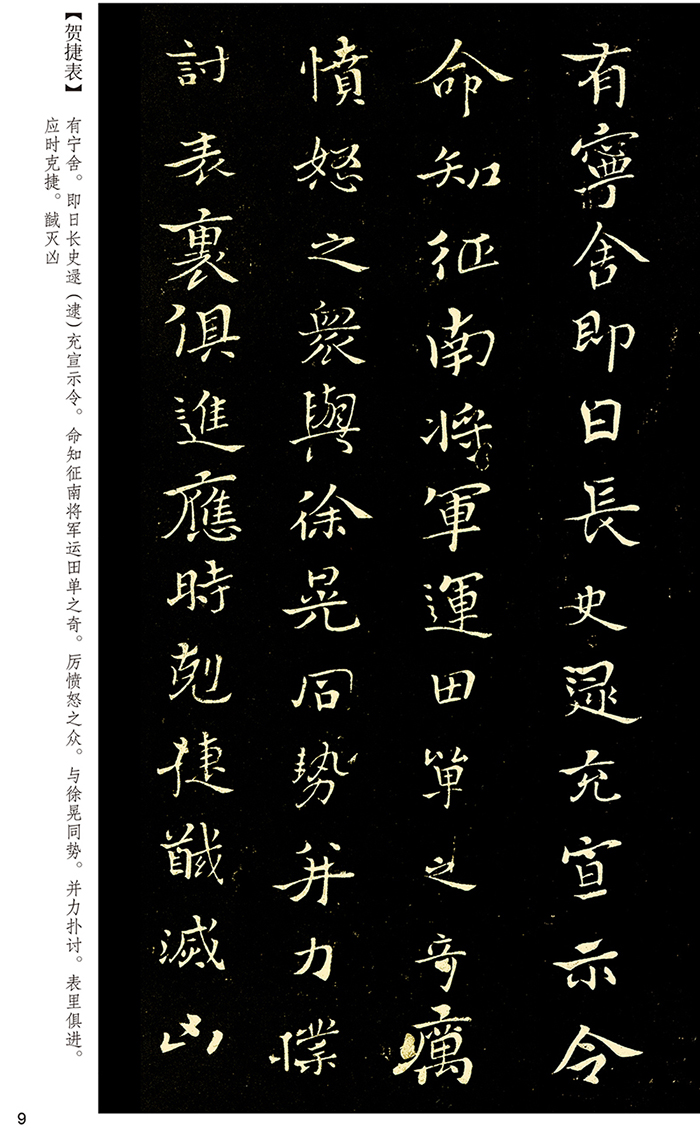 有寧舍即日長史逯充宣示令
命知征南将軍運田單之奇厲
憤怒之眾與徐晃同勢并力撲
討表裏俱進應時剋捷馘滅凶
【贺捷表】
有宁舍。即日长史逯（逮）充宣示令。命知征南将军运田单之奇。厉愤怒之众。与徐晃同势。并力扑讨。表里俱进。
应时克捷。馘灭凶
9